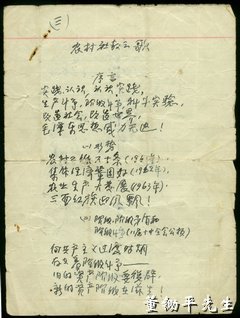 (三)
农村社教三歌
序言
实践,认识,再实践,
生产斗争,阶级斗争,科学实验,
改造社会,改造世界,
毛泽东思想威力无边!
(一)形势
农村工作六十条(1961年)
集体经济巩固(1962年)
农业生产大发展(1963年)
三面红旗迎风飘!
(二)阶级、阶级矛盾和
阶级斗争(八届十中全会公报)
向共产主义过渡时期
向
旧的资产阶级
新的资产阶级
董锄平先生